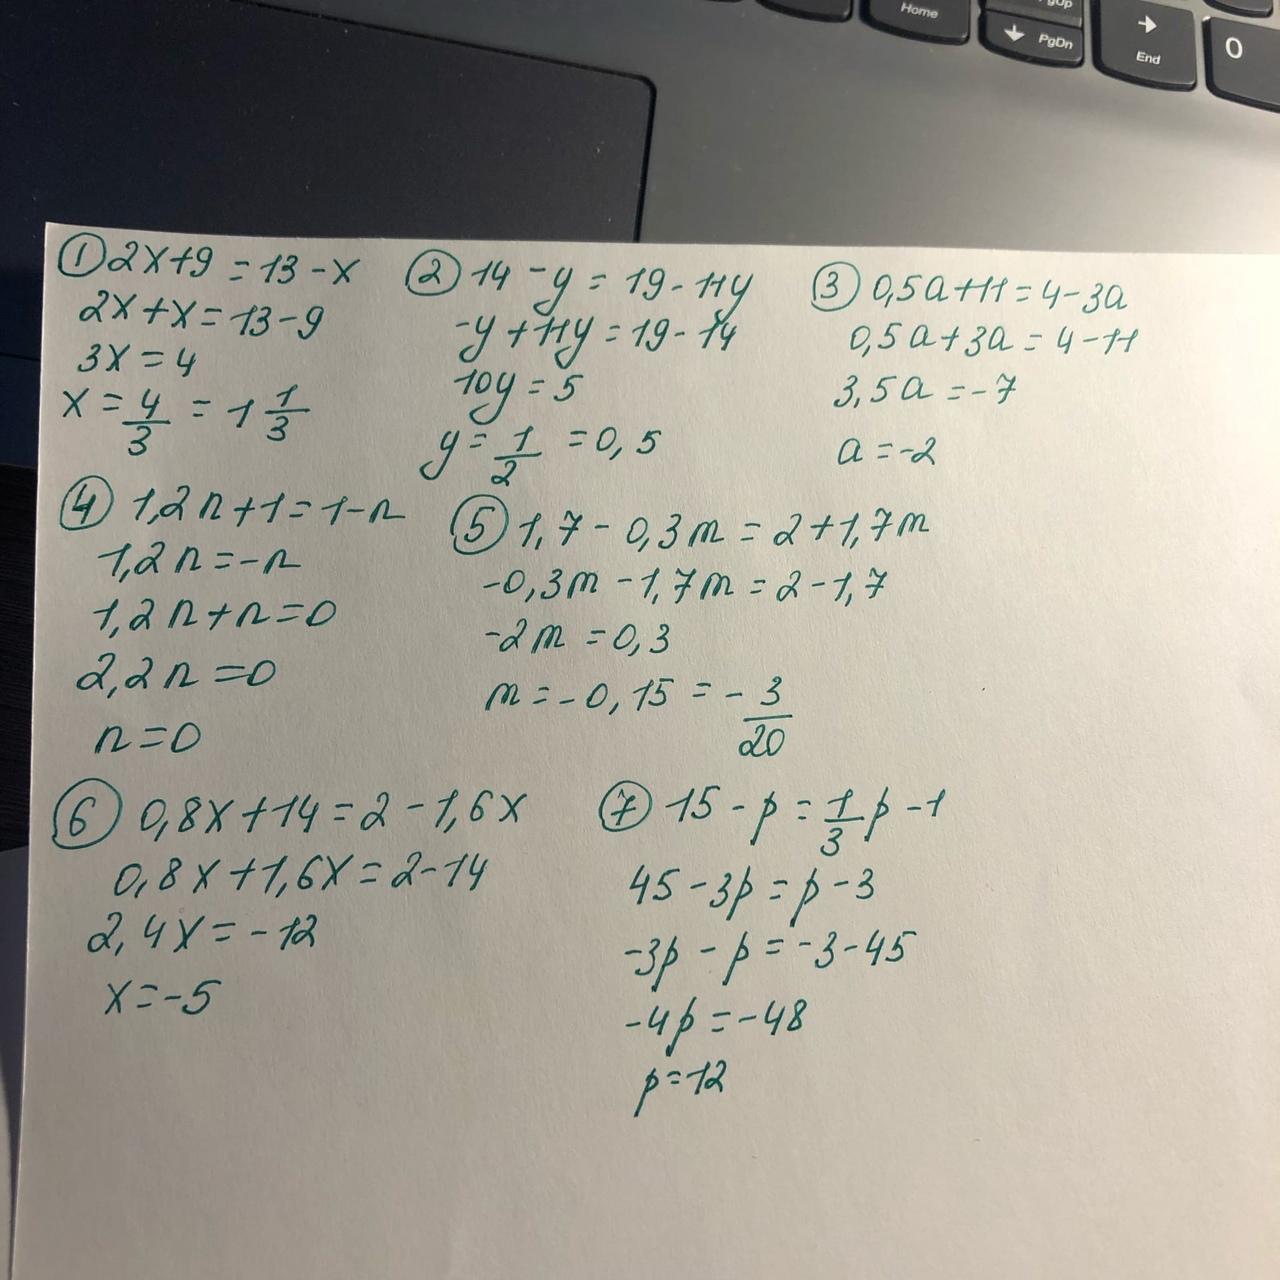 Home
PgUp
PgDn
End
0
① 2x+9=13-x
2x+x=13-9
3x=4
x=4/3=1 1/3
② 14-y=19-11y
-y+11y=19-14
10y=5
y=1/2=0,5
③ 0,5a+11=4-3a
0,5a+3a=4-11
3,5a=-7
a=-2
④ 1,2n+1=1-n
1,2n=-n
1,2n+n=0
2,2n=0
n=0
⑤ 1,7-0,3m=2+1,7m
-0,3m-1,7m=2-1,7
-2m=0,3
m=-0,15=-3/20
⑥ 0,8x+14=2-1,6x
0,8x+1,6x=2-14
2,4x=-12
x=-5
⑦ 15-p=1/3p-1
45-3p=p-3
-3p-p=-3-45
-4p=-48
p=12